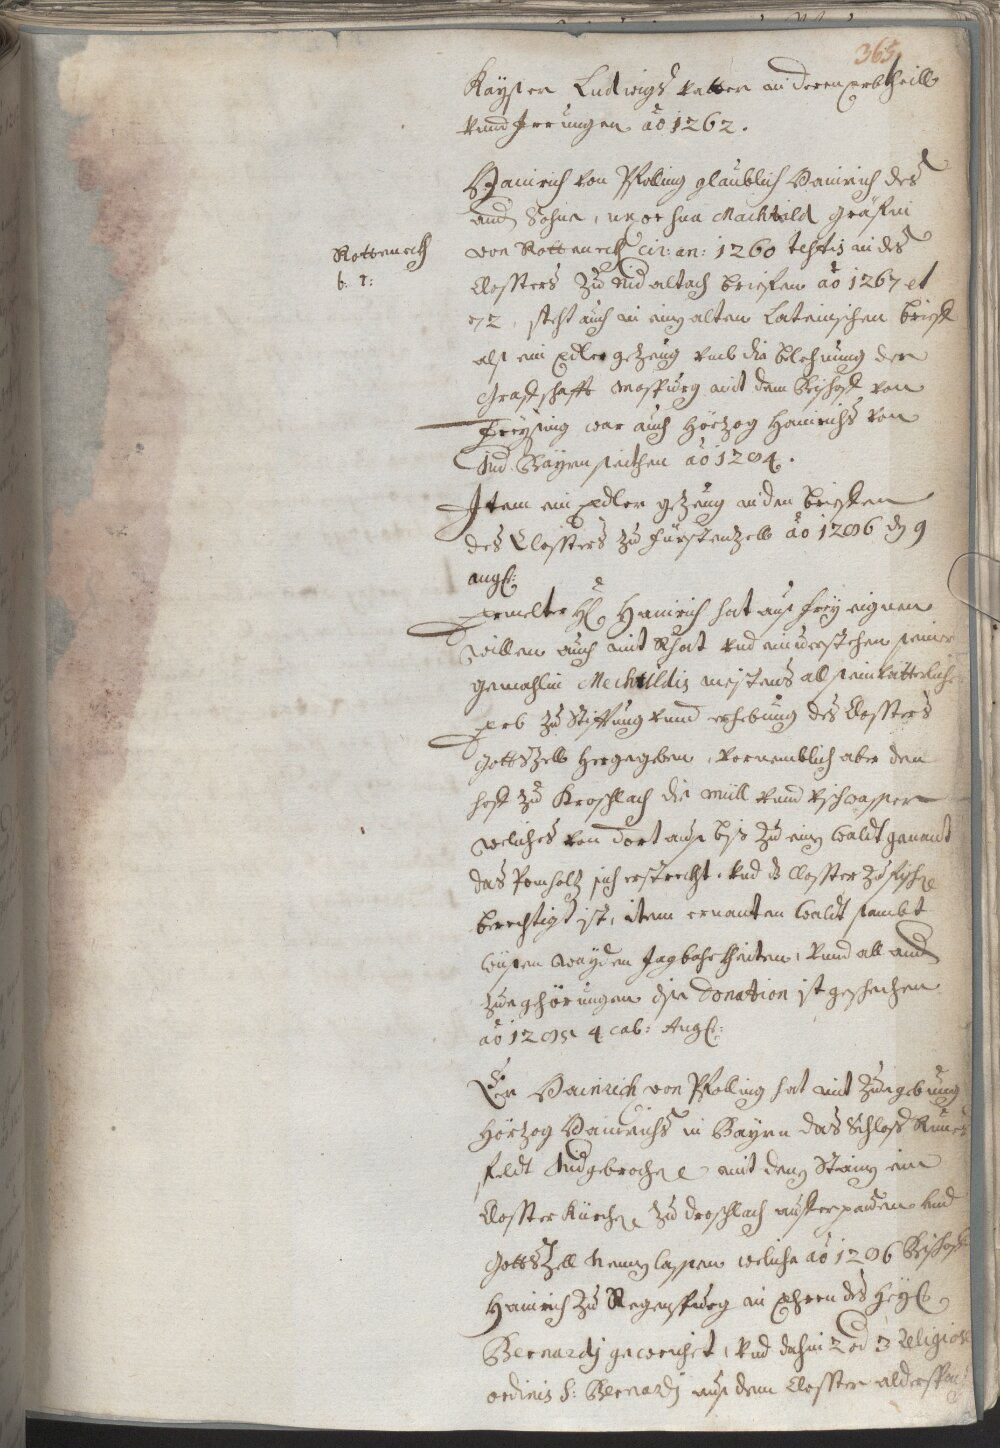 365
Kayser Ludwigs vatter in deren erbtheill
vnnd Irrungen ao 1262.
Hainrich von Pfolling glaublich Hainrich des
and Sohne, uxor sua Machtild Gräfin
von Rottenech cir: an: 1260 testis in des
Rottenech
b: r:
Closters zu Nid altach briefen ao 1267 et
72, steht auch in einem alten Lateinischen brief
als ein Edler gezeug vmb die belehnung der
Grafschafft Mospurg mit dem Bischof von
Freysing war auch Hörzog Hainrichs von
Nid Bayrn seithen ao 1294.
Item ein Edler gezeug in den briefen
des Closters zu Fürstenzell ao 1296 den 9
aug:
Ermelter H Hainrich hat aus frey eignen
willen auch mit Rhat vnd einuerstehen seiner
gemahlin Mechtildis meistens all sein vätterliche
erb zu Stifftung vnnd erhebung des Closters
Gottszell hergegeben, vornemblich aber den
hoff zu Kroschlach die müll vnnd vischwasser
welches von dort aus bis zu einem Waldt genant
das Pomholtz sich erstreckht. vnd das Closter zu fischen
berechtigd ist, item ernanten Waldt sambt
wisen wayden Jagbahrkheiten, vnnd all and
zuegehörungen dise donation ist geschechen
ao 1295 4 cal: Aug:
Er Hainrich von Pfolling hat mit zuegebung
Hörzog Hainrichs in Bayrn das Schloss
feldt Nidgebrochen mit dem Stainen ein
Closter Kürchen zu droschlach aufferpauen vnd
Gottszell nennen lassen weliche ao 1296 Bischoff
Hainrich zu Regenspurg in Ehren des Heyl
Bernardj geweichet, vnd dahin 2 od 3 religiose
ordinis S: Bernardj aus dem Closter alderspach